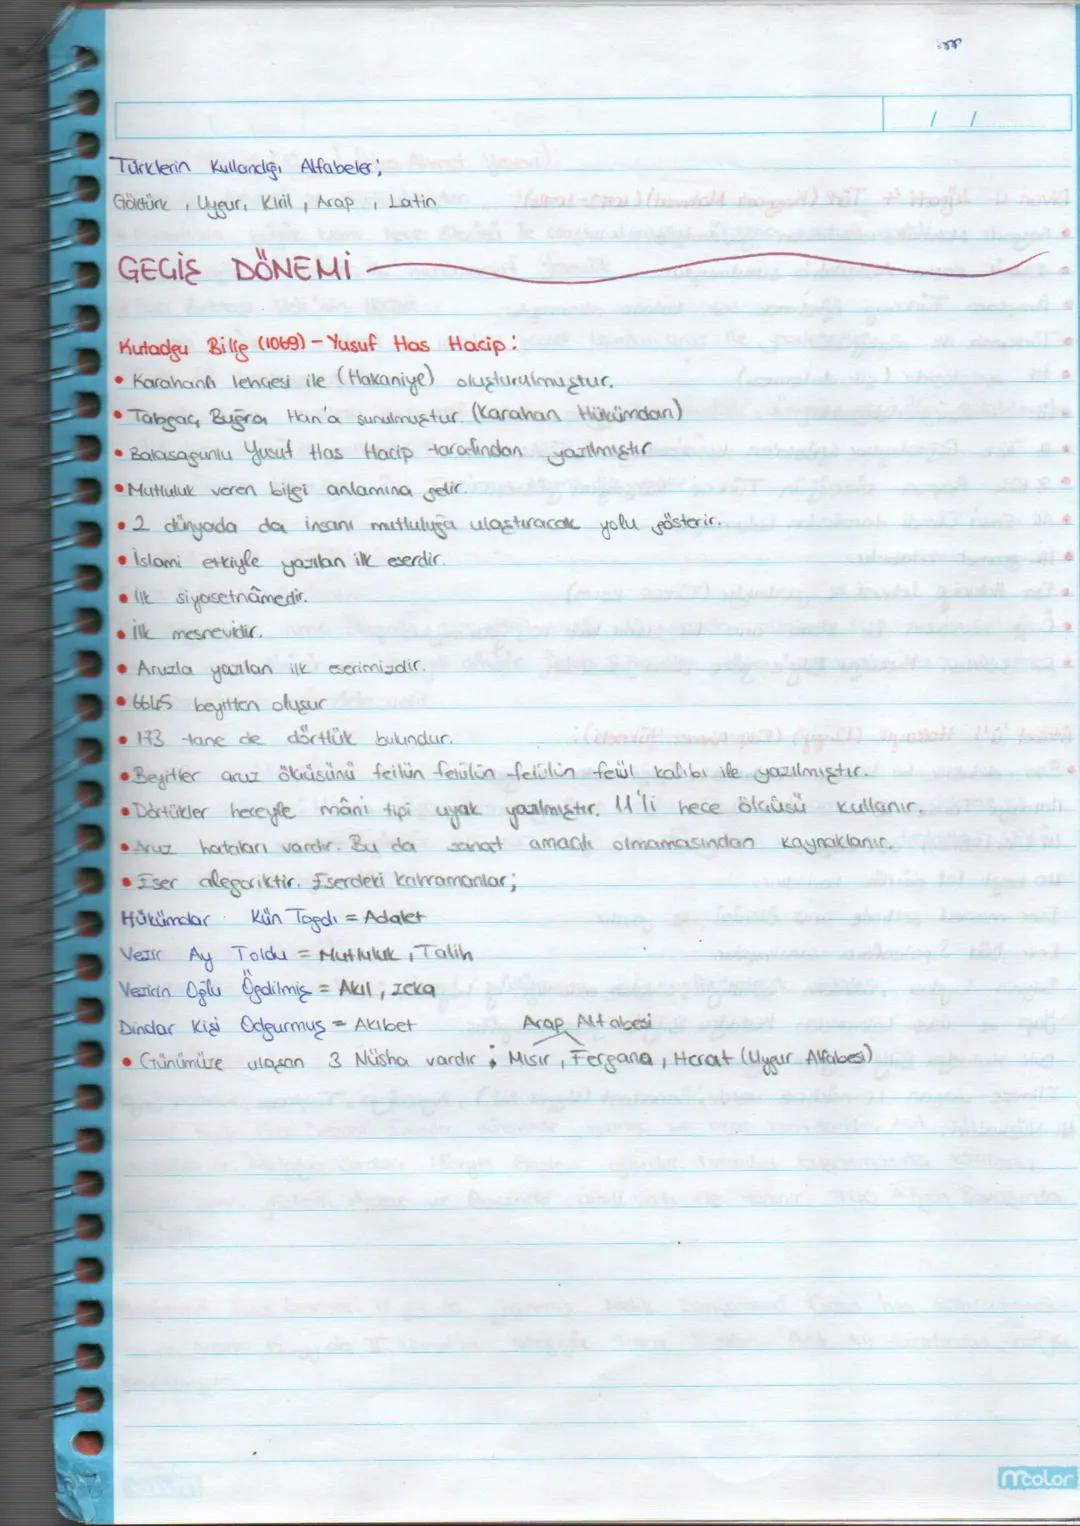 Türklerin Kullandığı Alfabeler;
Göktürk, Uygur, Kiril, Arap, Latin
GEÇİŞ DÖNEMİ
Kutadgu Bilig (1069) - Yusuf Has Hacip:
• Karahanlı lehçesi ile (Hakaniye) oluşturulmuştur.
• Tabgaç Buğra Han'a sunulmuştur. (Karahan Hükümdarı)
• Balasagunlu Yusuf Has Hacip tarafından yazılmıştır
• Mutluluk veren bilgi anlamına gelir.
• 2 dünyada da insanı mutluluğa ulaştıracak yolu gösterir.
• İslami etkiyle yazılan ilk eserdir.
• İlk siyasetnâmedir.
• İlk mesnevidir.
• Aruzla yazılan ilk eserimizdir.
• 6645 beyitten oluşur
• 173 tane de dörtlük bulundur.
• Beyitler aruz ölçüsünü feilün feiülün feiülün feül kalıbı ile yazılmıştır.
• Dörtükler hereyle mâni tipi uyak yazılmıştır. 11'li hece ölçüsü kullanır.
• Aruz hataları vardır. Bu da sanat amaçlı olmamasından kaynaklanır.
• Eser alegoriktir. Eserdeki kahramanlar;
Hükümdar Kün Togdı = Adalet
Vezir Ay Toldu = Mutluluk, Talih
Vezirin Oğlu Ögdilmiş = Akıl, zeka
Dindar Kişi Odgurmuş = Akıbet
Arap Alfabesi
• Günümüze ulaşan 3 Nüsha vardır; Mısır, Fergana, Herat (Uygur Alfabesi)
mcolor